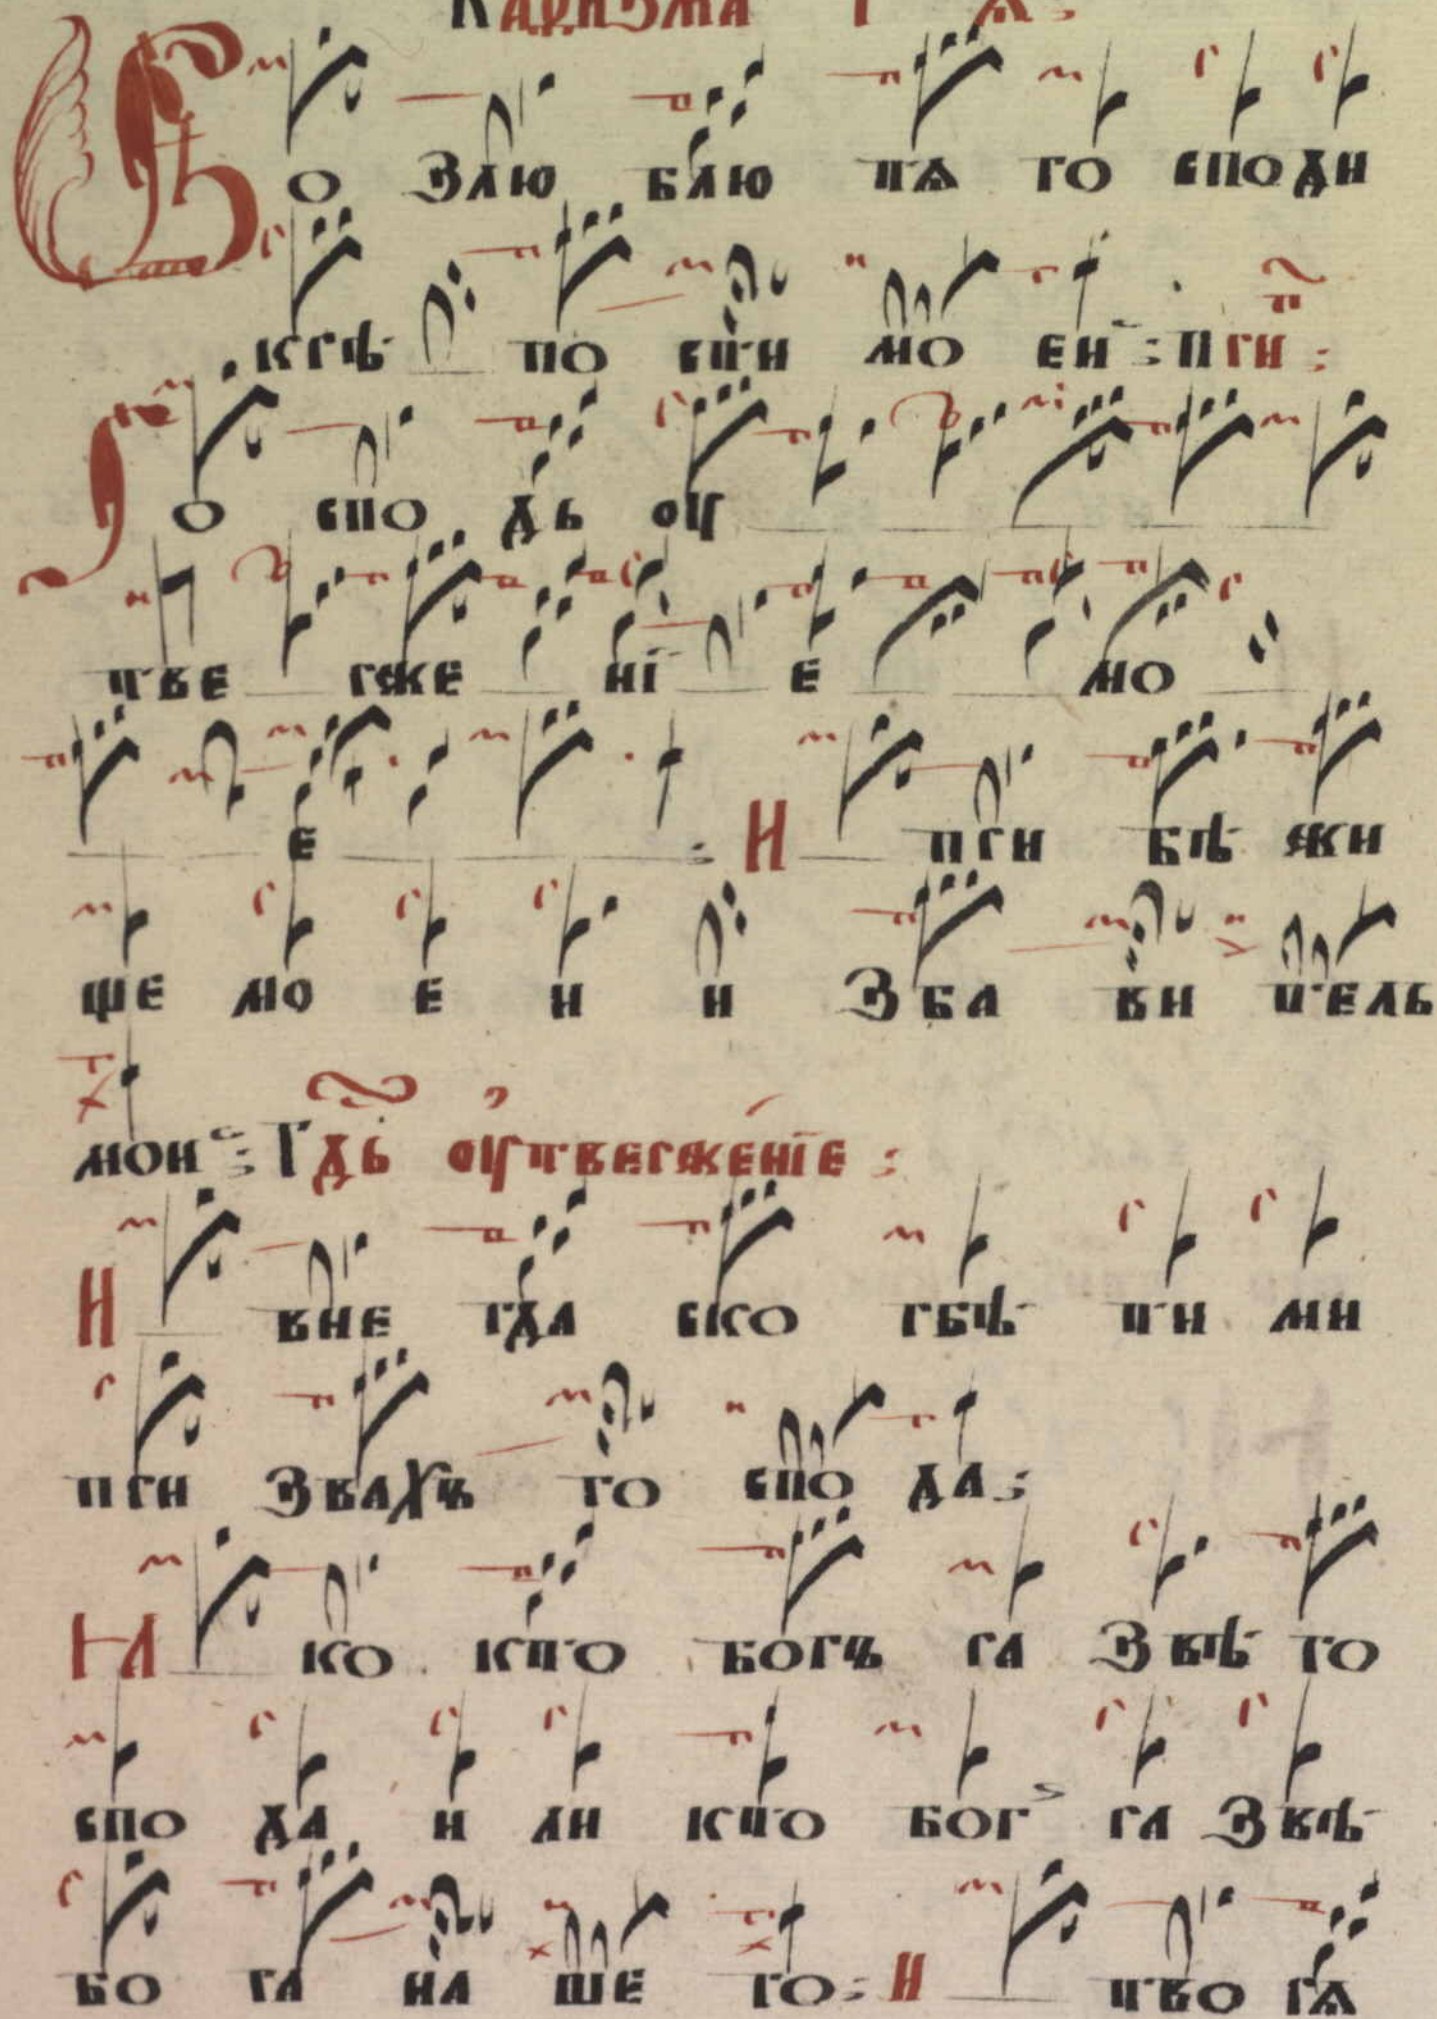 Каѳизма г ѧ҃:
Во злю блю тѧ го спо ди
крѣ по сти мо еи : при :
Го спо дь оу
тве рже ні е мо
е : И при бѣ жи
ще мо е и и зба ви тель
мои : Гдⷭ҇ь оутверже́ніе :
И вне гда ско рбѣ ти ми
при звахъ го спо да :
Ꙗ ко кто богъ ра звѣ го
спо да и ли кто бог ра звѣ
бо га на ше го : И тво рѧ